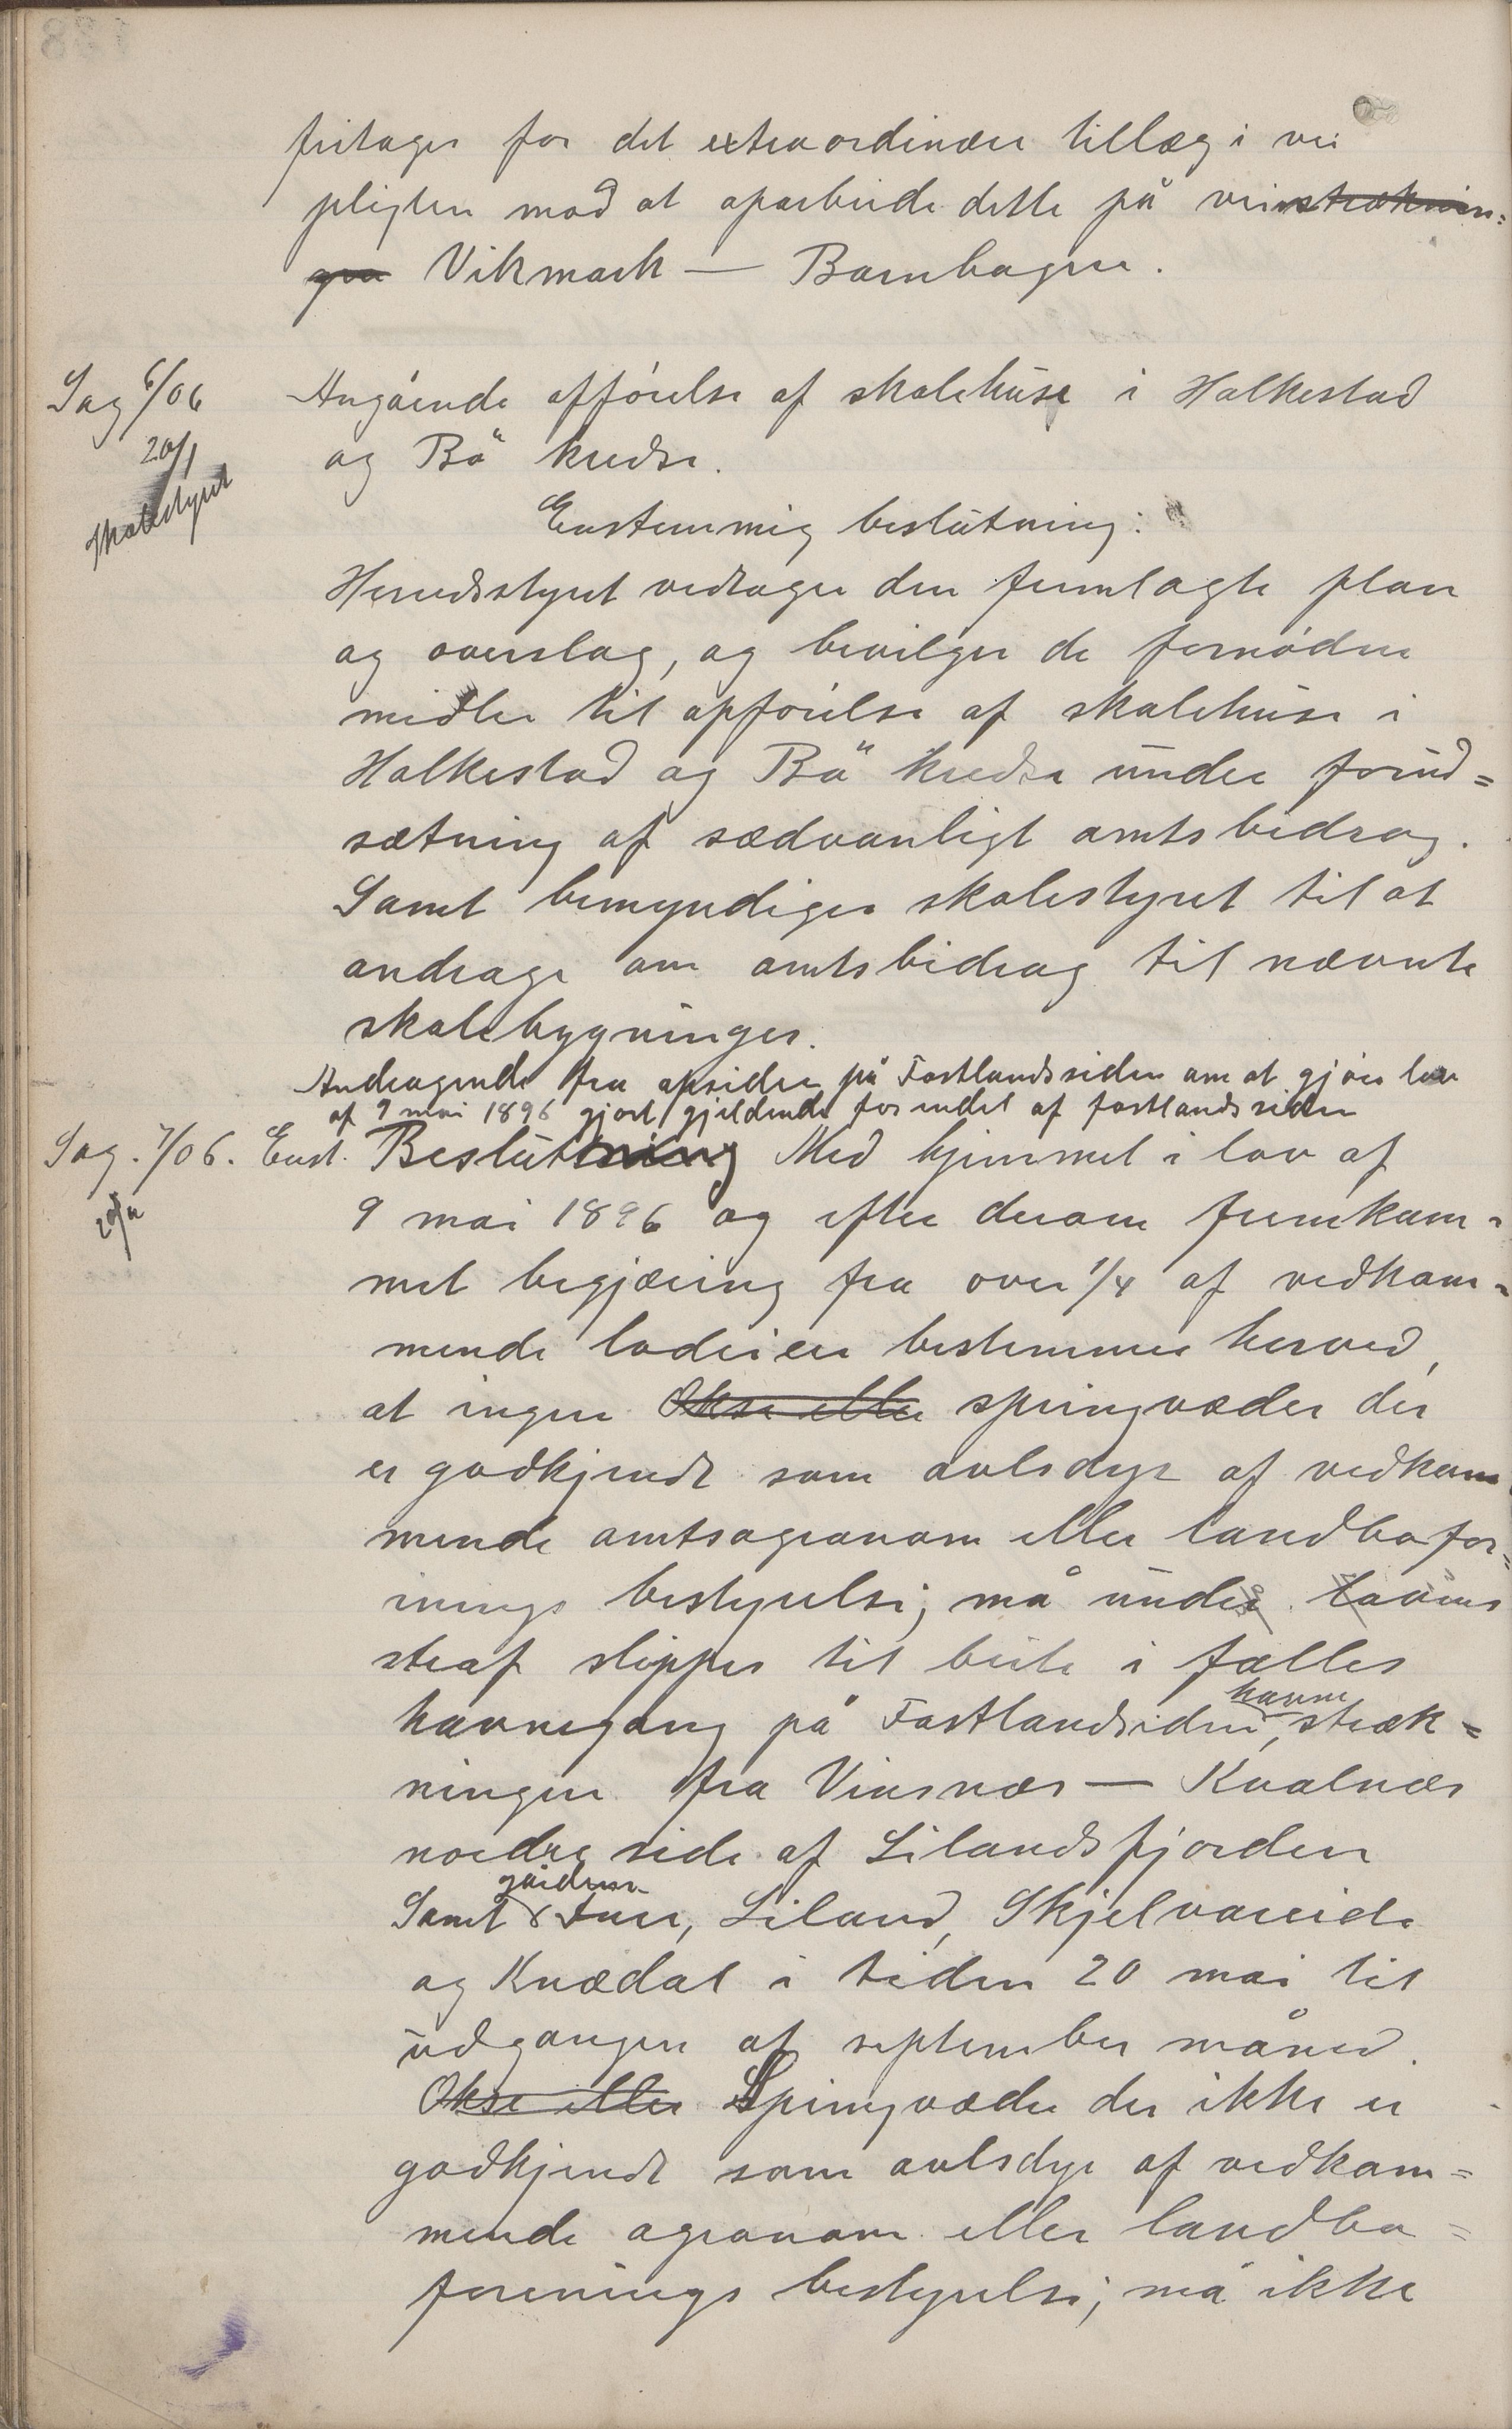 fritages for det extraordinære tillæg i vei
pligten mod at oparbeide dette på veistræknin=
gen Vikmark — Barnhagen.
Sag 6/06
20/1
Skolestyret
Angående opførelse af skolehuse i Halkestad
og Bø kredse.
Enstemmig beslutning:
Herredsstyret vedtager den fremlagte plan
og overslag, og bevilger de fornødne
midler til opførelse af skolehuse i
Halkestad og Bø kredse under forud=
sætning af sædvanligt amtsbidrag.
Samt bemyndiges skolestyret til at
andrage om amtsbidrag til nævnte
skolebygninger.
Andragende fra opsidere på Fastlandssiden om at gjøre lov
af 9 mai 1896 gjort gjeldende for endel af fastlandssiden
Sag. 7/06. Enst. Beslutning Med hjemmel i lov af
9 mai 1896 og efter derom fremkom=
met begjæring fra over 1/4 af vedkom=
mende lodeiere bestemmes herved,
at ingen Okse eller springvæder der
er godkjendt som avlsdyr af vedkom
mende amtsagronom eller landbofor=
inings bestyrelse; må under lovens
straf slippes til beite i fælles
havnegang på Fastlandsiden, havne
stræk=
ningen fra Vinsnæs — Kvalnæs
nordre side af Lilandsfjorden
gårdene
Samt Fuur, Liland, Skjelvareide
og Knædal i tiden 20 mai til
udgangen af september måned.
Okse eller Springvæder der ikke er
godkjendt som avlsdyr af vedkom=
mende agronom eller landbo=
forenings bestyrelse; må ikke